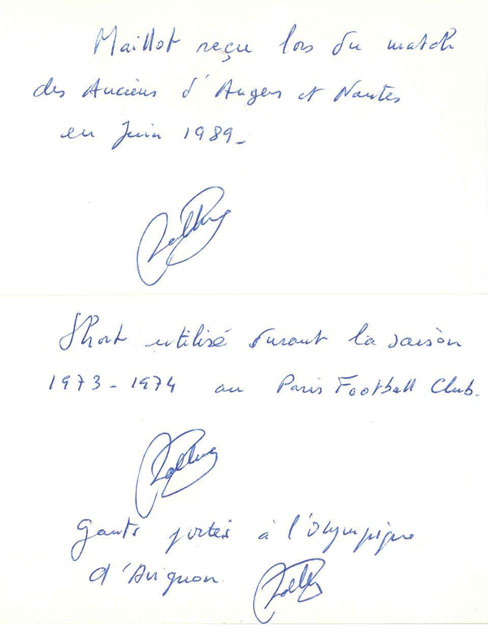 Maillot reçu lors du match
des Anciens d'Angers et Nantes
en Juin 1989-
Short utilisé durant la saison
1973-1974 au Paris Football Club.
Gants portés à l'Olympique
d'Avignon